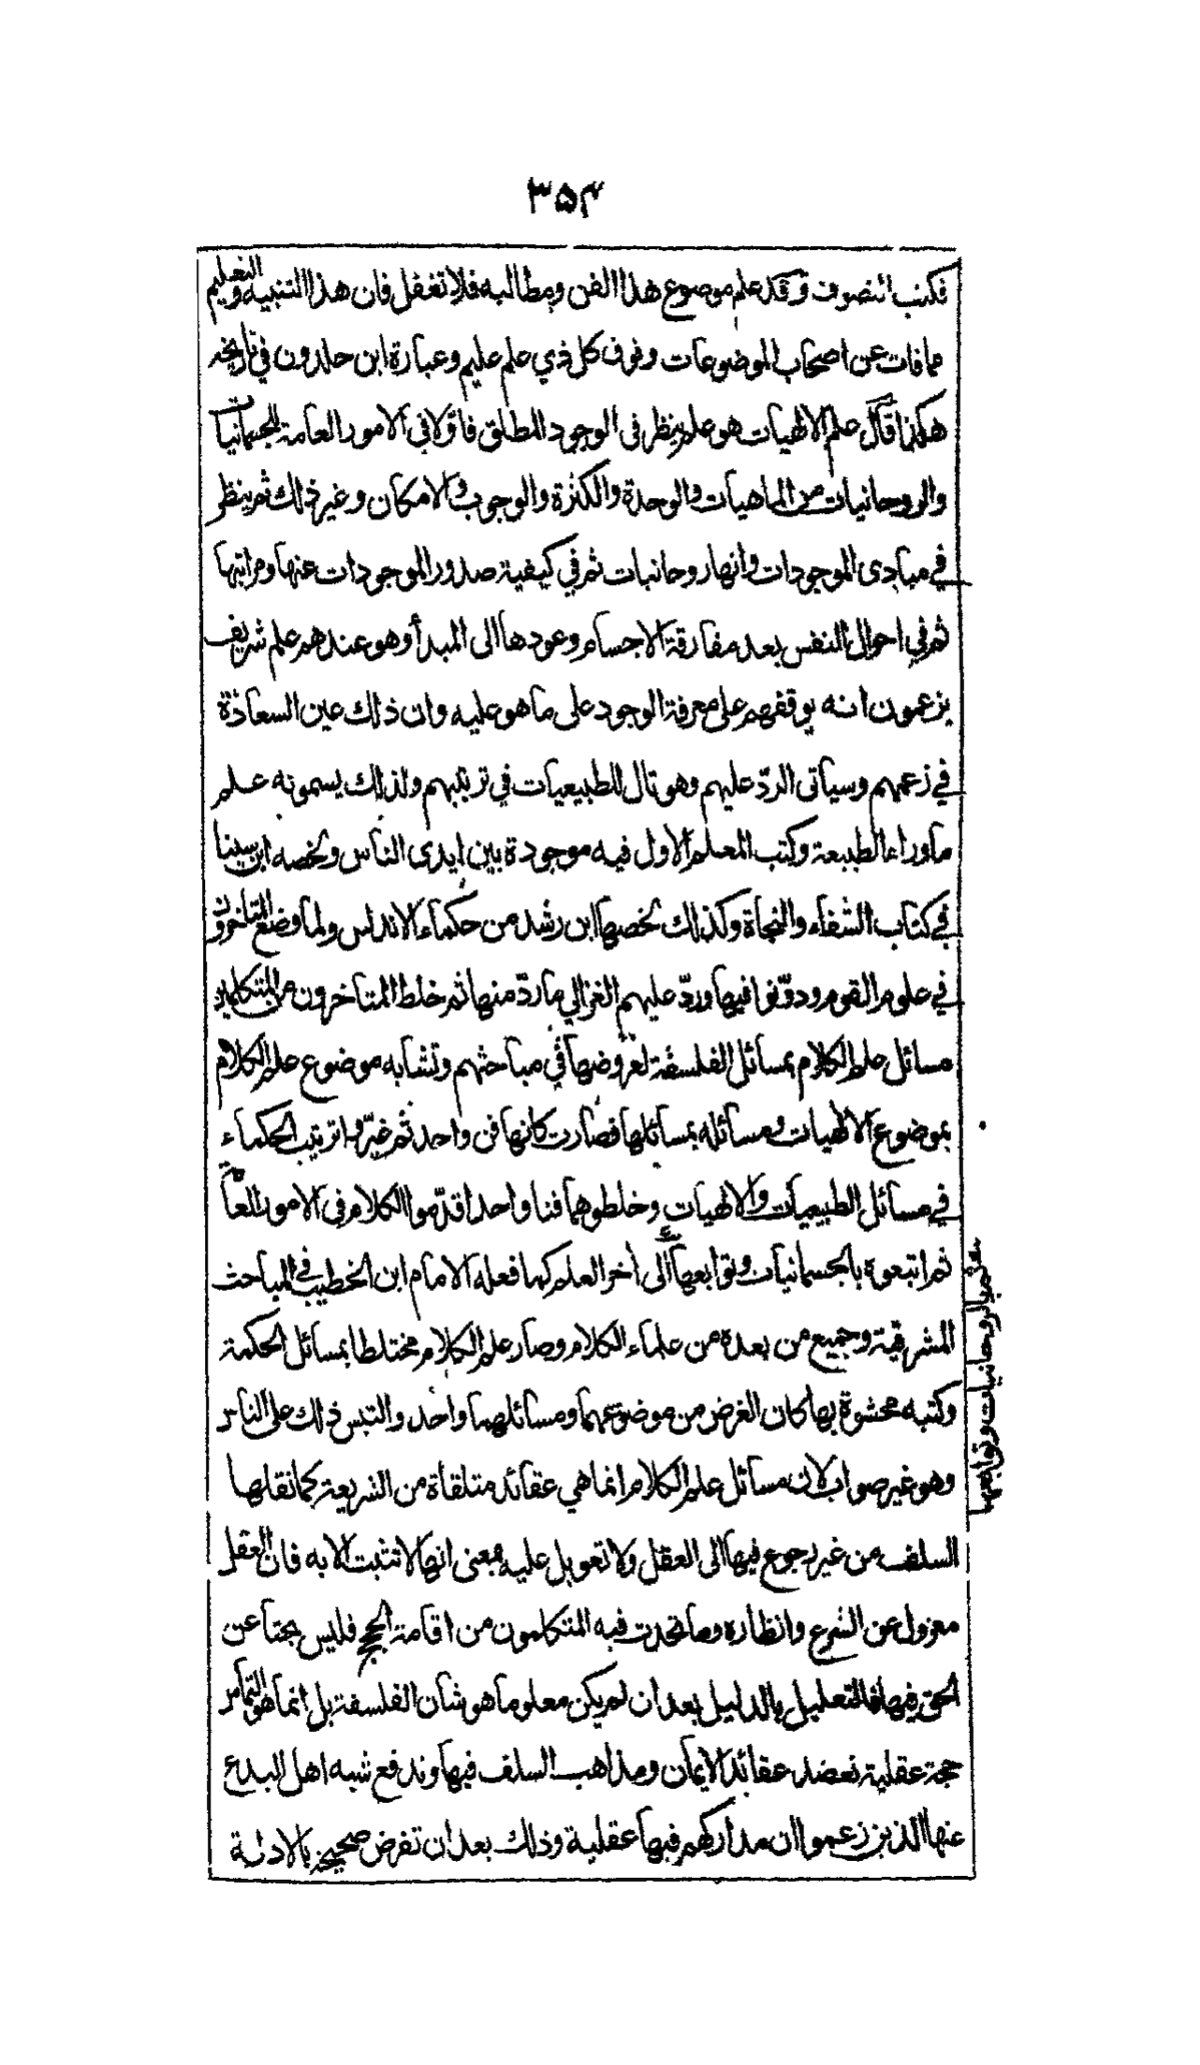 ۳۵۴
فكتب التصوف وقد علم موضوع هذا الفن ومطالبه فلا تغفل فان هذا التنبيه والتعليم
مما فات عن اصحاب الموضوعات وفوق كل ذي علم عليم وعبارة ابن خلدون في تاريخه
هكذا قال علم الالهيات هو علم ينظر في الوجود المطلق فاولا في الامور العامة للجسمانيات
والروحانيات من الماهيات والوحدة والكثرة والوجوب والامكان وغير ذلك ثم ينظر
في مبادى الموجودات وانها روحانيات ثم في كيفية صدور الموجودات عنها ومراتبها
ثم في احوال النفس بعد مفارقة الاجسام وعودها الى المبدأ وهو عندهم علم شريف
يزعمون انه يوقفهم على معرفة الوجود على ما هو عليه وان ذلك عين السعادة
في زعمهم وسياتى الردّ عليهم وهو تال للطبيعيات في ترتيبهم ولذلك يسمونه علم
ما وراء الطبيعة وكتب المعلم الاول فيه موجودة بين ايدى الناس ولخصه ابن سينا
في كتاب الشفاء والنجاة وكذلك لخصها ابن رشد من حكماء الاندلس ولما وضع المتاخرون
في علوم القوم ودوّنوا فيها وردّ عليهم الغزالي ما ردّ منها ثم خلط المتاخرون من المتكلمين
مسائل علم الكلام بمسائل الفلسفة لعروضها في مباحثهم وتشابه موضوع علم الكلام
بموضوع الالهيات ومسائله بمسائلها فصارت كانها فن واحد ثم غيّروا ترتيب الحكماء
في مسائل الطبيعيات والالهيات وخلطوهما فنا واحدا قدّموا الكلام في الامور العامة
ثم اتبعوه بالجسمانيات وتوابعها الى أخر العلم كما فعله الامام ابن الخطيب في المباحث
المشرقية وجميع من بعده من علماء الكلام وصار علم الكلام مختلطا بمسائل الحكمة
وكتبه محشوة بها كان الغرض من موضوعهما ومسائلهما واحد والتبس ذلك على الناس
وهو غير صواب لان مسائل علم الكلام انما هي عقائد متلقاة من الشريعة كما نقلها
السلف من غير رجوع فيها الى العقل ولا تعويل عليه بمعنى انها لا تثبت الا به فان العقل
معزول عن الشرع وانظاره وما تحدث فيه المتكلمون من اقامة الحجج فليس بحثا عن
الحق فيها فالتعليل بالدليل بعد ان لم يكن معلوما هو شان الفلسفة بل انما هو التماس
حجة عقلية تعضد عقائد الايمان ومذاهب السلف فيها وتدفع شبه اهل البدع
عنها الذين زعموا ان مداركهم فيها عقلية وذلك بعد ان تفرض صحيحة بالادلة
ثم بالروحانيات وتوابعها